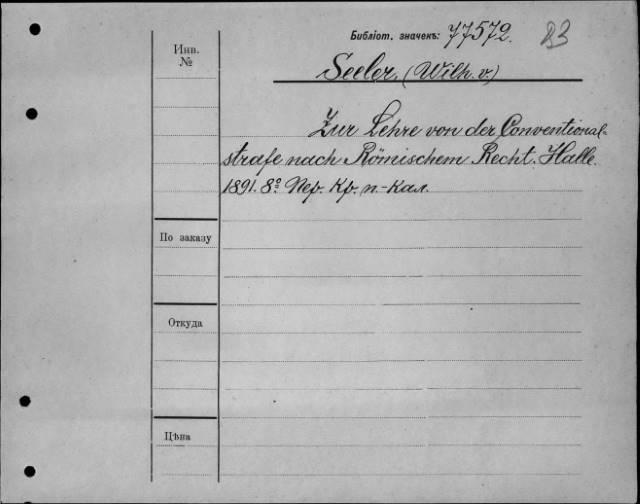 Библіот. значекъ: 77572. B3
Инв.
№
Seeler, (Wilh. v.)
Zur Lehre von der Conventional-
strafe nach Römischem Recht. Halle.
1891. 8º. Пер. Кр. п.-Кал.
По заказу
Откуда
Цѣна